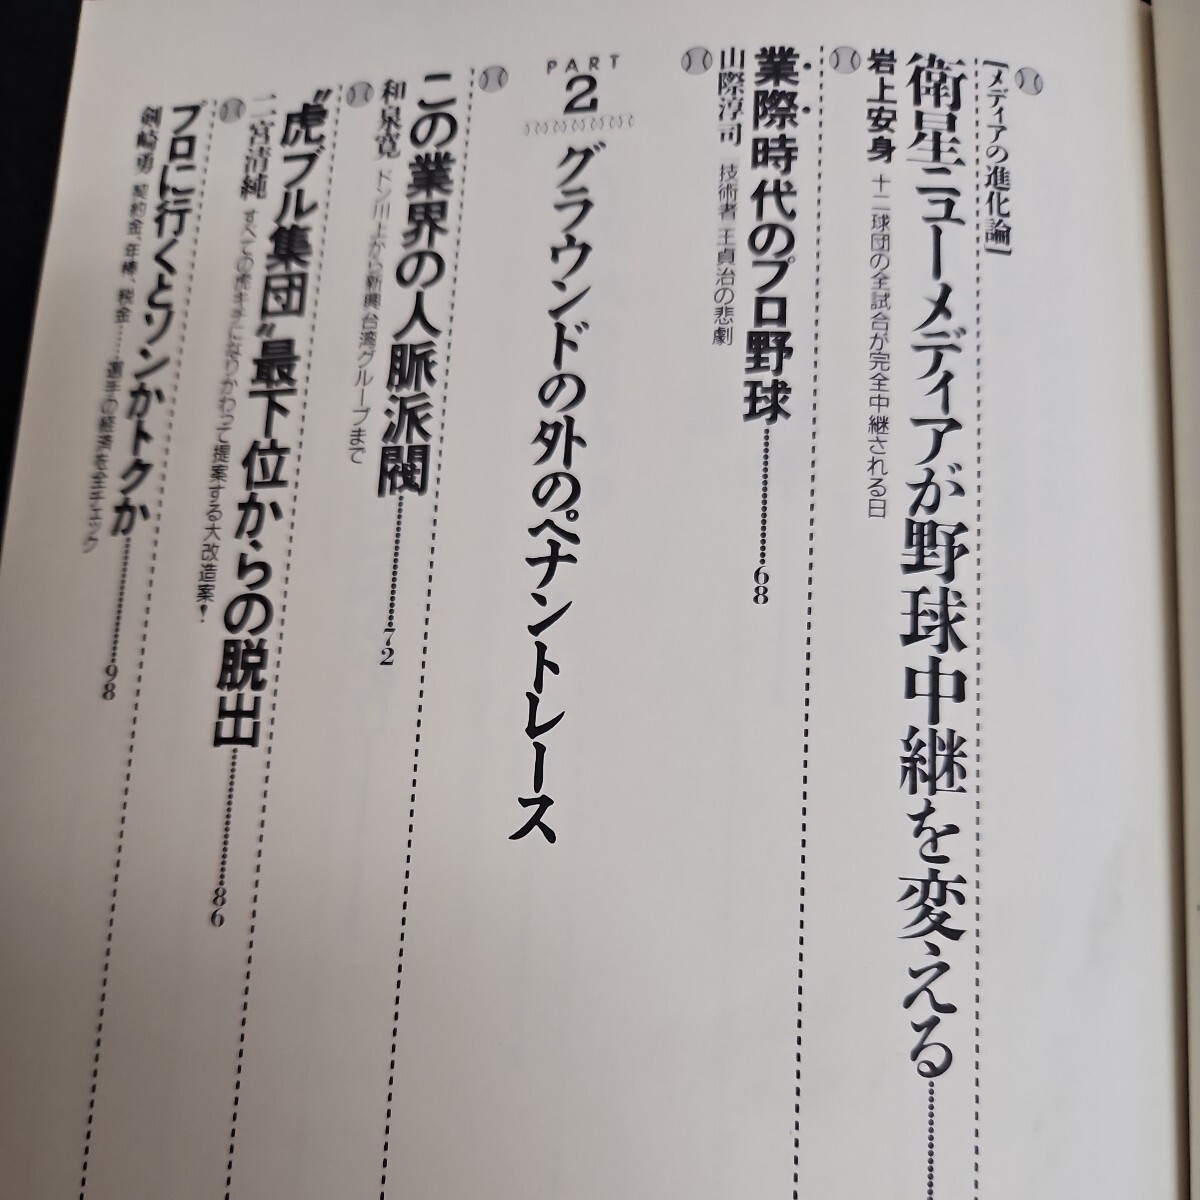 [メディアの進化論]
衛星ニューメディアが野球中継を変える
岩上安身 十二球団の全試合が完全中継される日
業際時代のプロ野球……68
山際淳司 技術者 王貞治の悲劇
PART
2
グラウンドの外のペナントレース
この業界の人脈派閥……72
和泉寛 ドン川上から新興台湾グループまで
“虎ブル集団”最下位からの脱出……86
二宮清純 すべての虎キチになりかわって提案する大改造案!
プロに行くとソンかトクか……98
剣崎勇 契約金、年棒、税金……選手の経済を全チェック